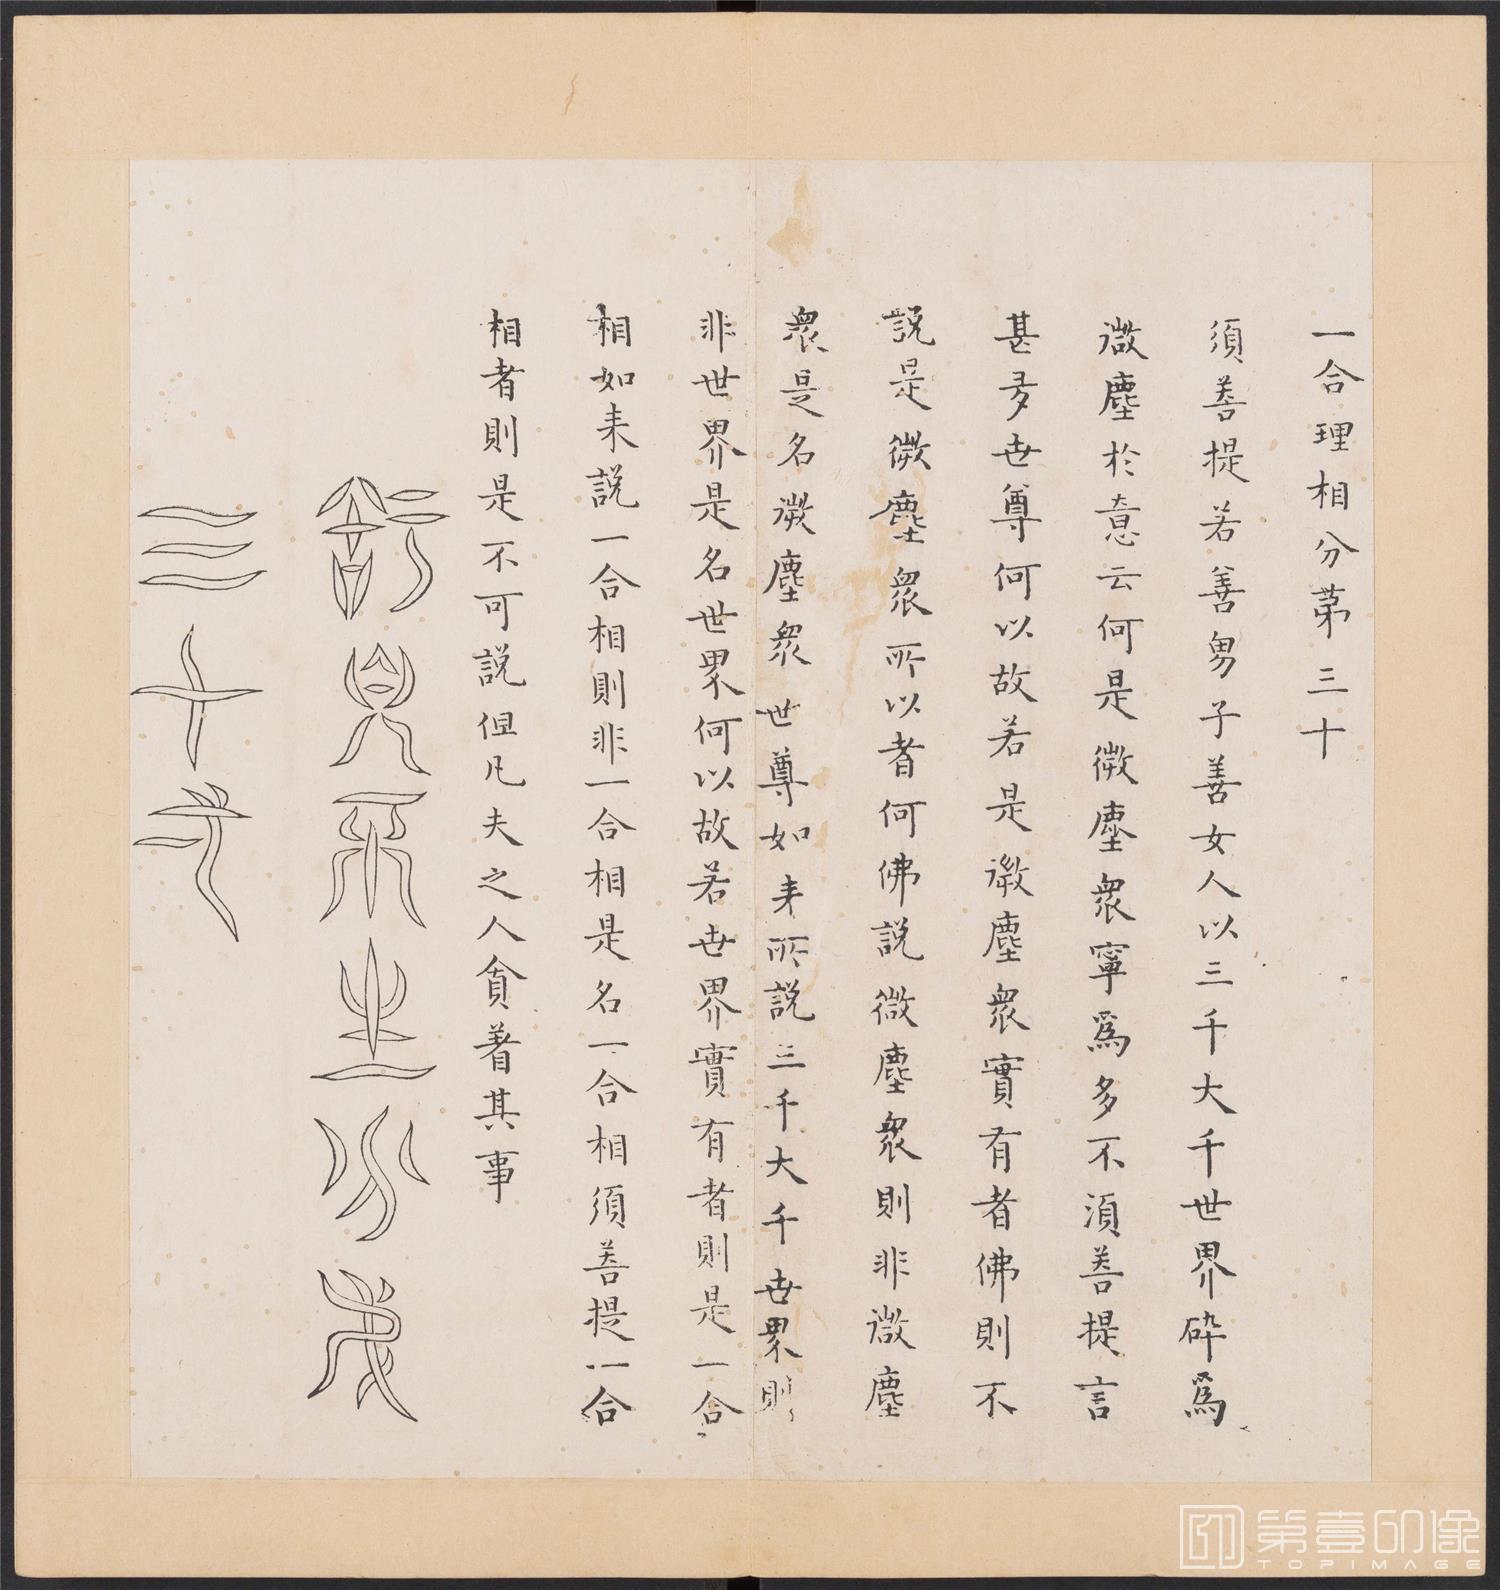 一合理相分第三十
須菩提若善男子善女人以三千大千世界碎爲
微塵於意云何是微塵衆寧爲多不須菩提言
甚多世尊何以故若是微塵衆實有者佛則不
説是微塵衆所以者何佛説微塵衆則非微塵
衆是名微塵衆世尊如来所説三千大千世界則
非世界是名世界何以故若世界實有者則是一合
相如来説一合相則非一合相是名一合相須菩提一合
相者則是不可説但凡夫之人貪著其事
知見不生分第
三十一
第壹印像
TOPIMAGE